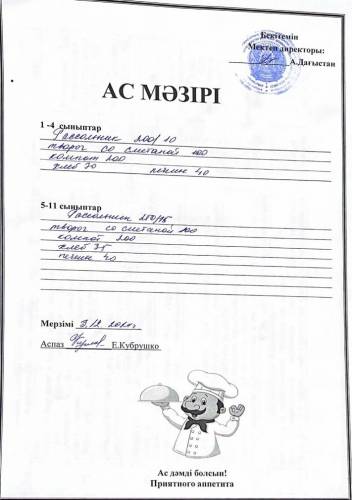 Бекітемін
Мектеп директоры:
А.Дағыстан
АС МӘЗІРІ
1-4 сыныптар
Рассольник 200/10
творог со сметаной 100
компот 200
хлеб 70 печенье 40
5-11 сыныптар
Рассольник 250/15
творог со сметаной 100
компот 200
хлеб 75
печенье 40
Мерзімі
Аспаз Е.Кубрушко
Ас дәмді болсын!
Приятного аппетита